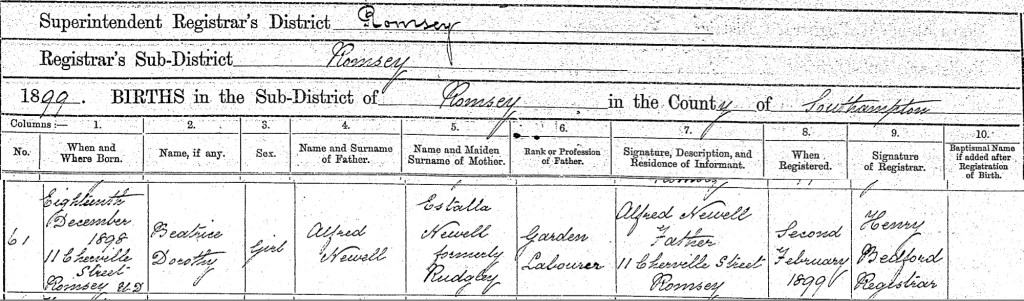 Superintendent Registrar's District Romsey
Registrar's Sub-District Romsey
1899. BIRTHS in the Sub-District of Romsey in the County of Southampton
Columns :— 1. 2. 3. 4. 5. 6. 7. 8. 9. 10.
No. When and Where Born. Name, if any. Sex. Name and Surname of Father. Name and Maiden Surname of Mother. Rank or Profession of Father. Signature, Description, and Residence of Informant. When Registered. Signature of Registrar. Baptismal Name if added after Registration of Birth.
61
Eighteenth
December
1898
11 Cherville
Street
Romsey U.D
Beatrice
Dorothy
Girl
Alfred
Newell
Estalla
Newell
formerly
Rudgley
Garden
Labourer
Alfred Newell
Father
11 Cherville Street
Romsey
Second
February
1899
Henry
Bedford
Registrar